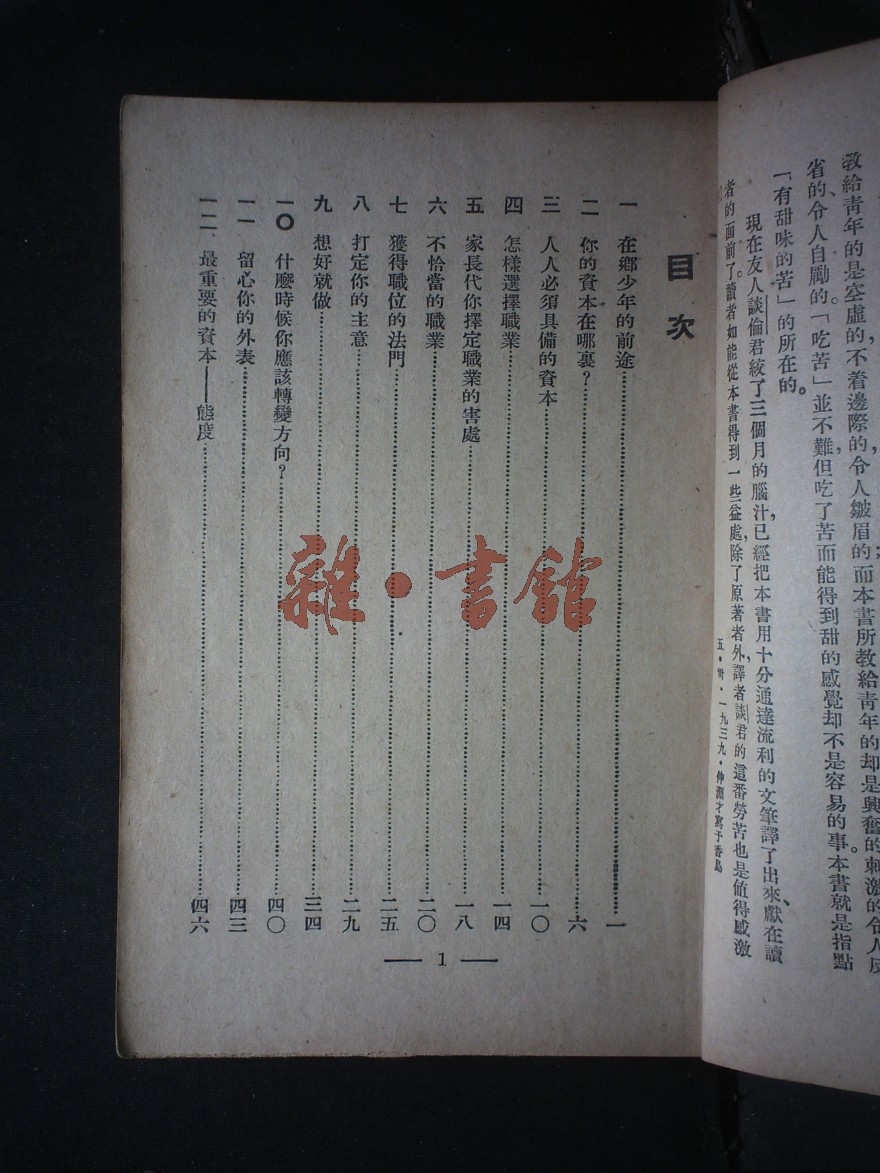 教給青年的是空虛的，不着邊際的令人皺眉的；而本書所教給青年的却是興奮的刺激的令人反
省的、令人自勵的。「吃苦」並不難，但吃了苦而能得到甜的感覺却不是容易的事。本書就是指點
「有甜味的苦」的所在的。
現在友人談倫君絞了三個月的腦汁，已經把本書用十分通達流利的文筆譯了出來、獻在讀
者的面前了。讀者如能從本書得到一些益處，除了原著者外，譯者談君的這番勞苦也是值得感激
五·卅·一九三九·仲
目次
一　在鄉少年的前途……一
二　你的資本在哪裏？……六
三　人人必須具備的資本……一〇
四　怎樣選擇職業……一四
五　家長代你擇定職業的害處……一八
六　不恰當的職業……二〇
七　獲得職位的法門……二五
八　打定你的主意……二九
九　想好就做……三四
一〇　什麼時候你應該轉變方向？……四〇
一一　留心你的外表……四三
一二、最重要的資本——態度……四六
— 1 —
雜·書館